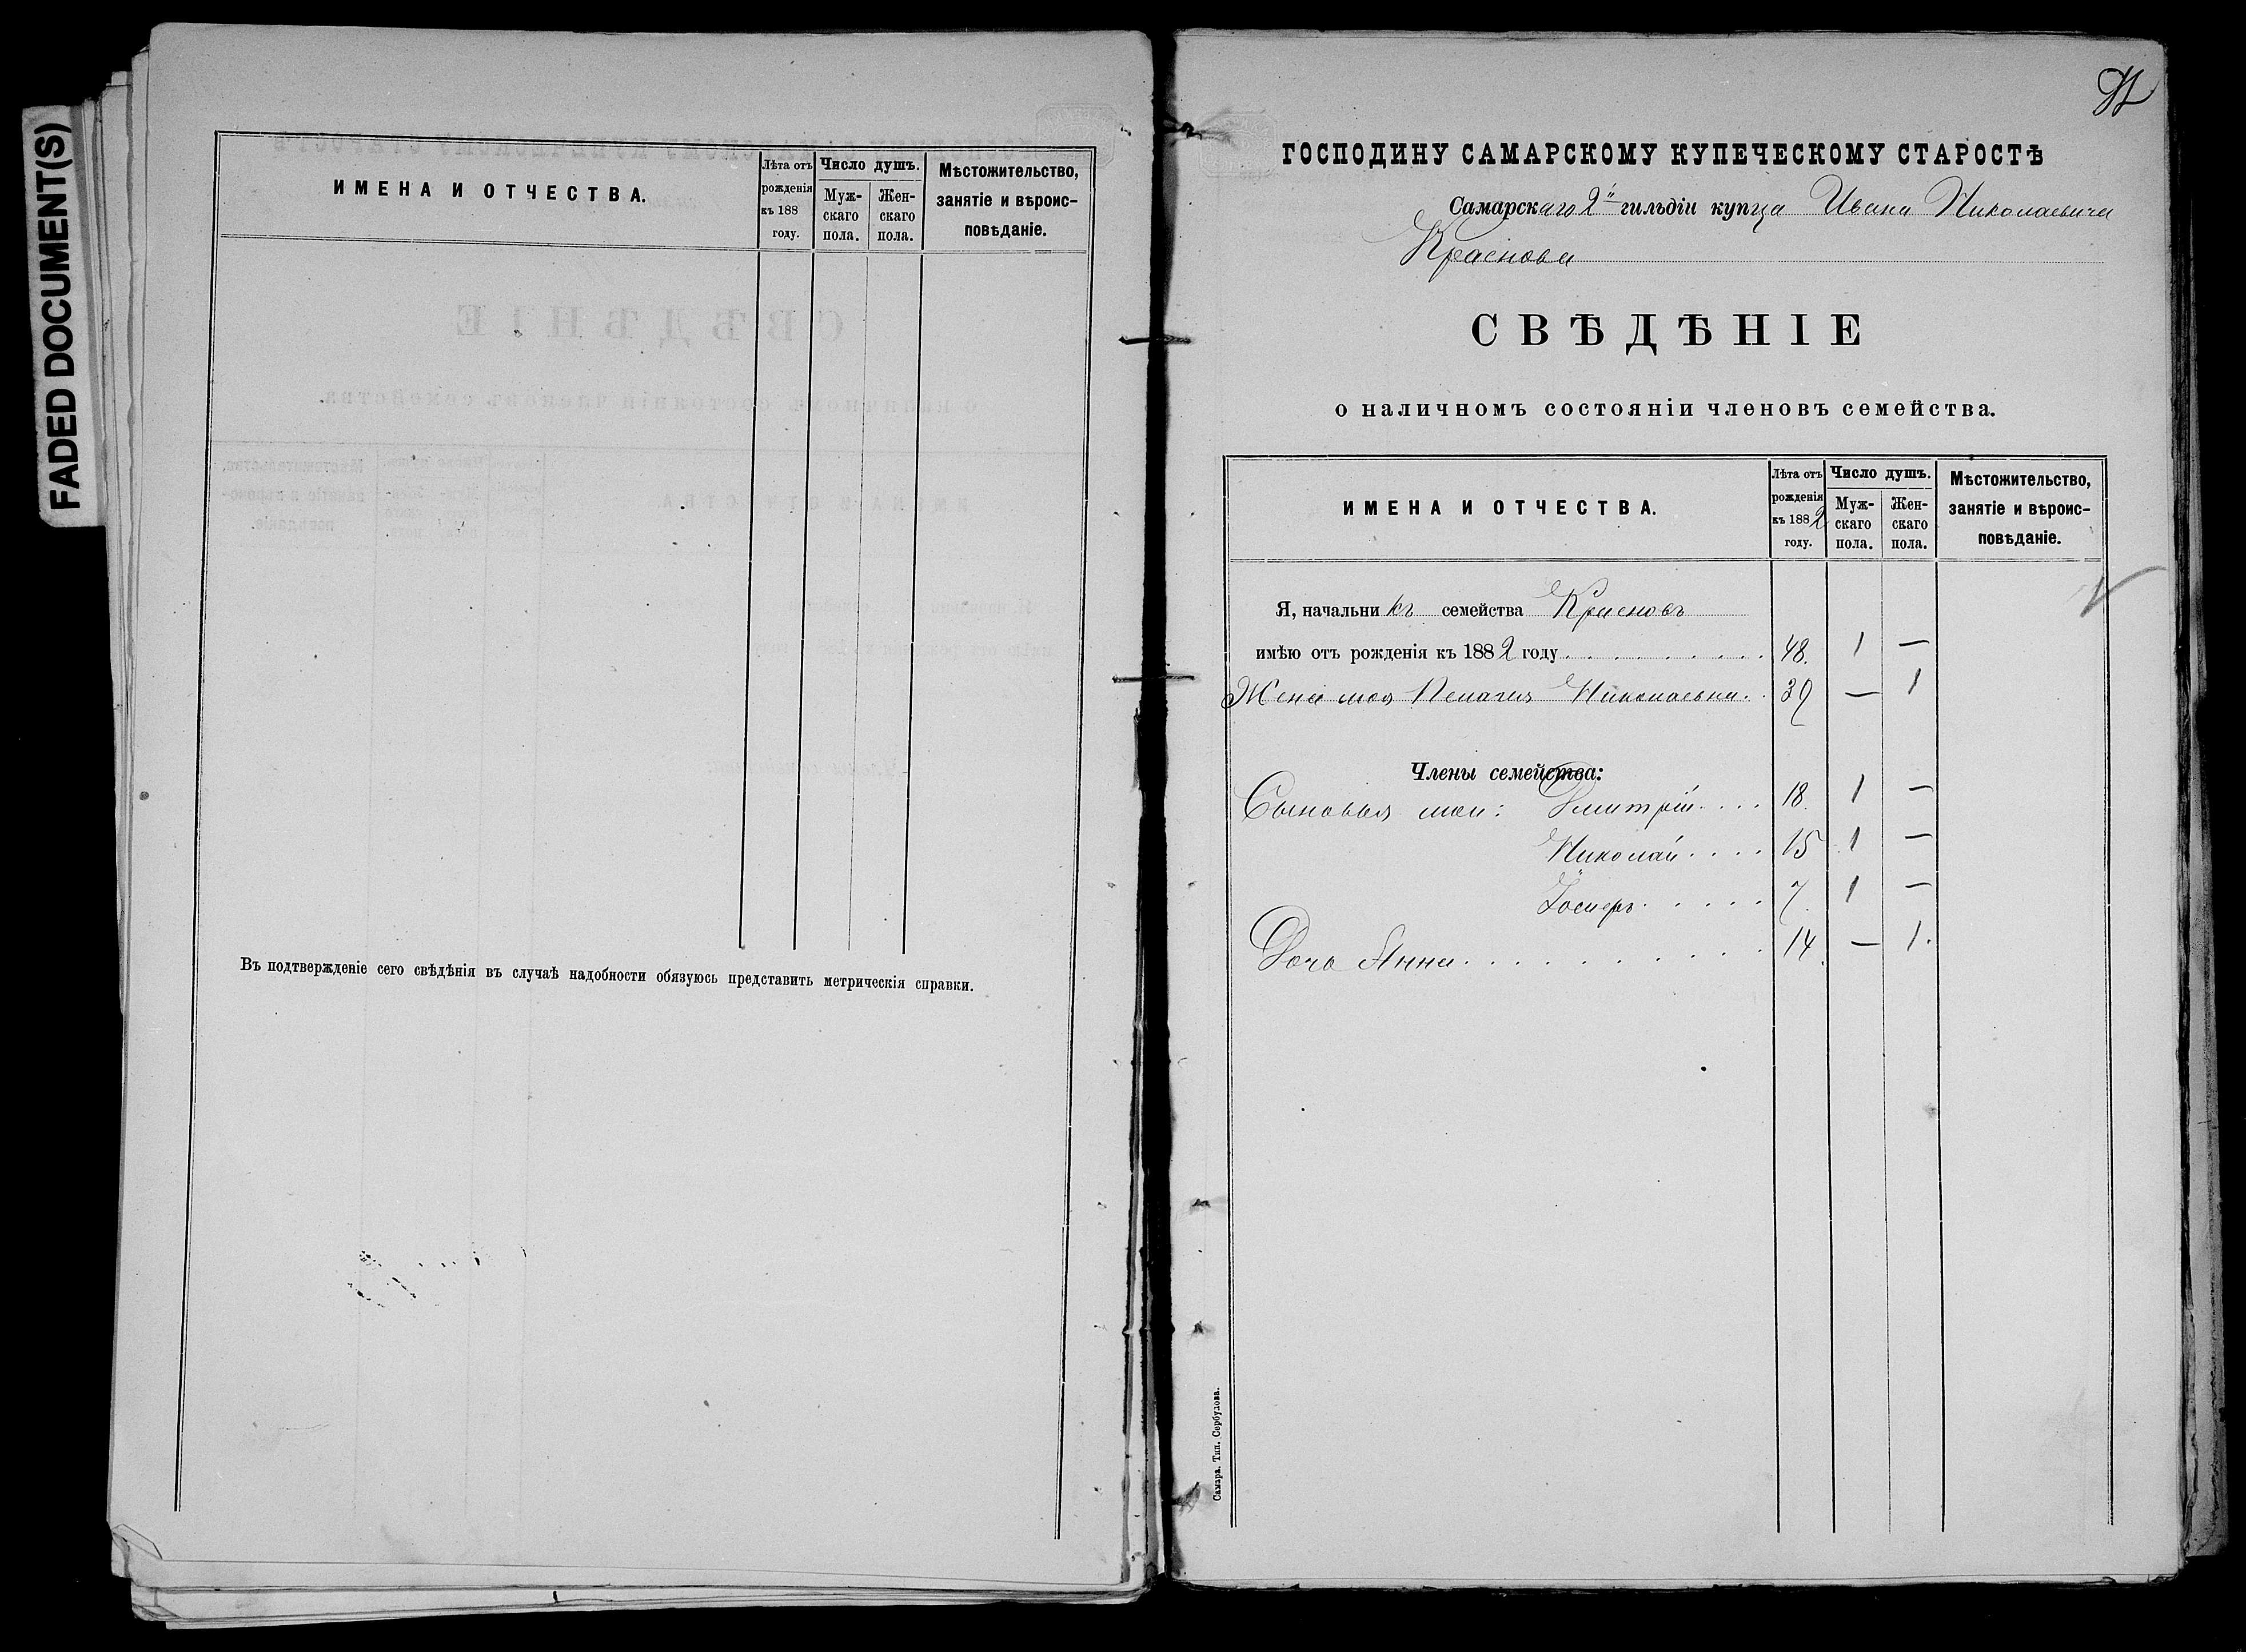 FADED DOCUMENT(S)
ИМЕНА И ОТЧЕСТВА.
Лѣта отъ рожденія къ 188 году.
Число душъ.
Мужскаго пола.
Женскаго пола.
Мѣстожительство, занятіе и вѣроисповѣданіе.
Въ подтвержденіе сего свѣдѣнія въ случаѣ надобности обязуюсь представить метрическія справки.
ГОСПОДИНУ САМАРСКОМУ КУПЕЧЕСКОМУ СТАРОСТѢ
Самарскаго 2й гильдіи купца Ивана Николаевича
Краснова
СВѢДѢНІЕ
о наличномъ состояніи членовъ семейства.
ИМЕНА И ОТЧЕСТВА.
Лѣта отъ рожденія къ 1882 году.
Число душъ.
Мужскаго пола.
Женскаго пола.
Мѣстожительство, занятіе и вѣроисповѣданіе.
Я, начальникъ семейства Красновъ
имѣю отъ рожденія къ 1882 году 48. 1 —
Жена моя Пелагия Николаевна. 39 — 1
Члены семейства:
Сыновья мои: Дмитрій 18. 1 —
Николай 15 1 —
Іосифъ 7. 1 —
Дочь Анна 14. — 1.
Самара. Тип. Сербулова.